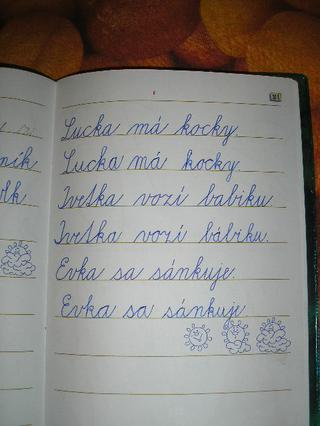 ník
Lucka má kocky.
Lucka má kocky.
Ivetka vozí babiku.
Ivetka vozí bábiku.
Evka sa sánkuje.
Evka sa sánkuje